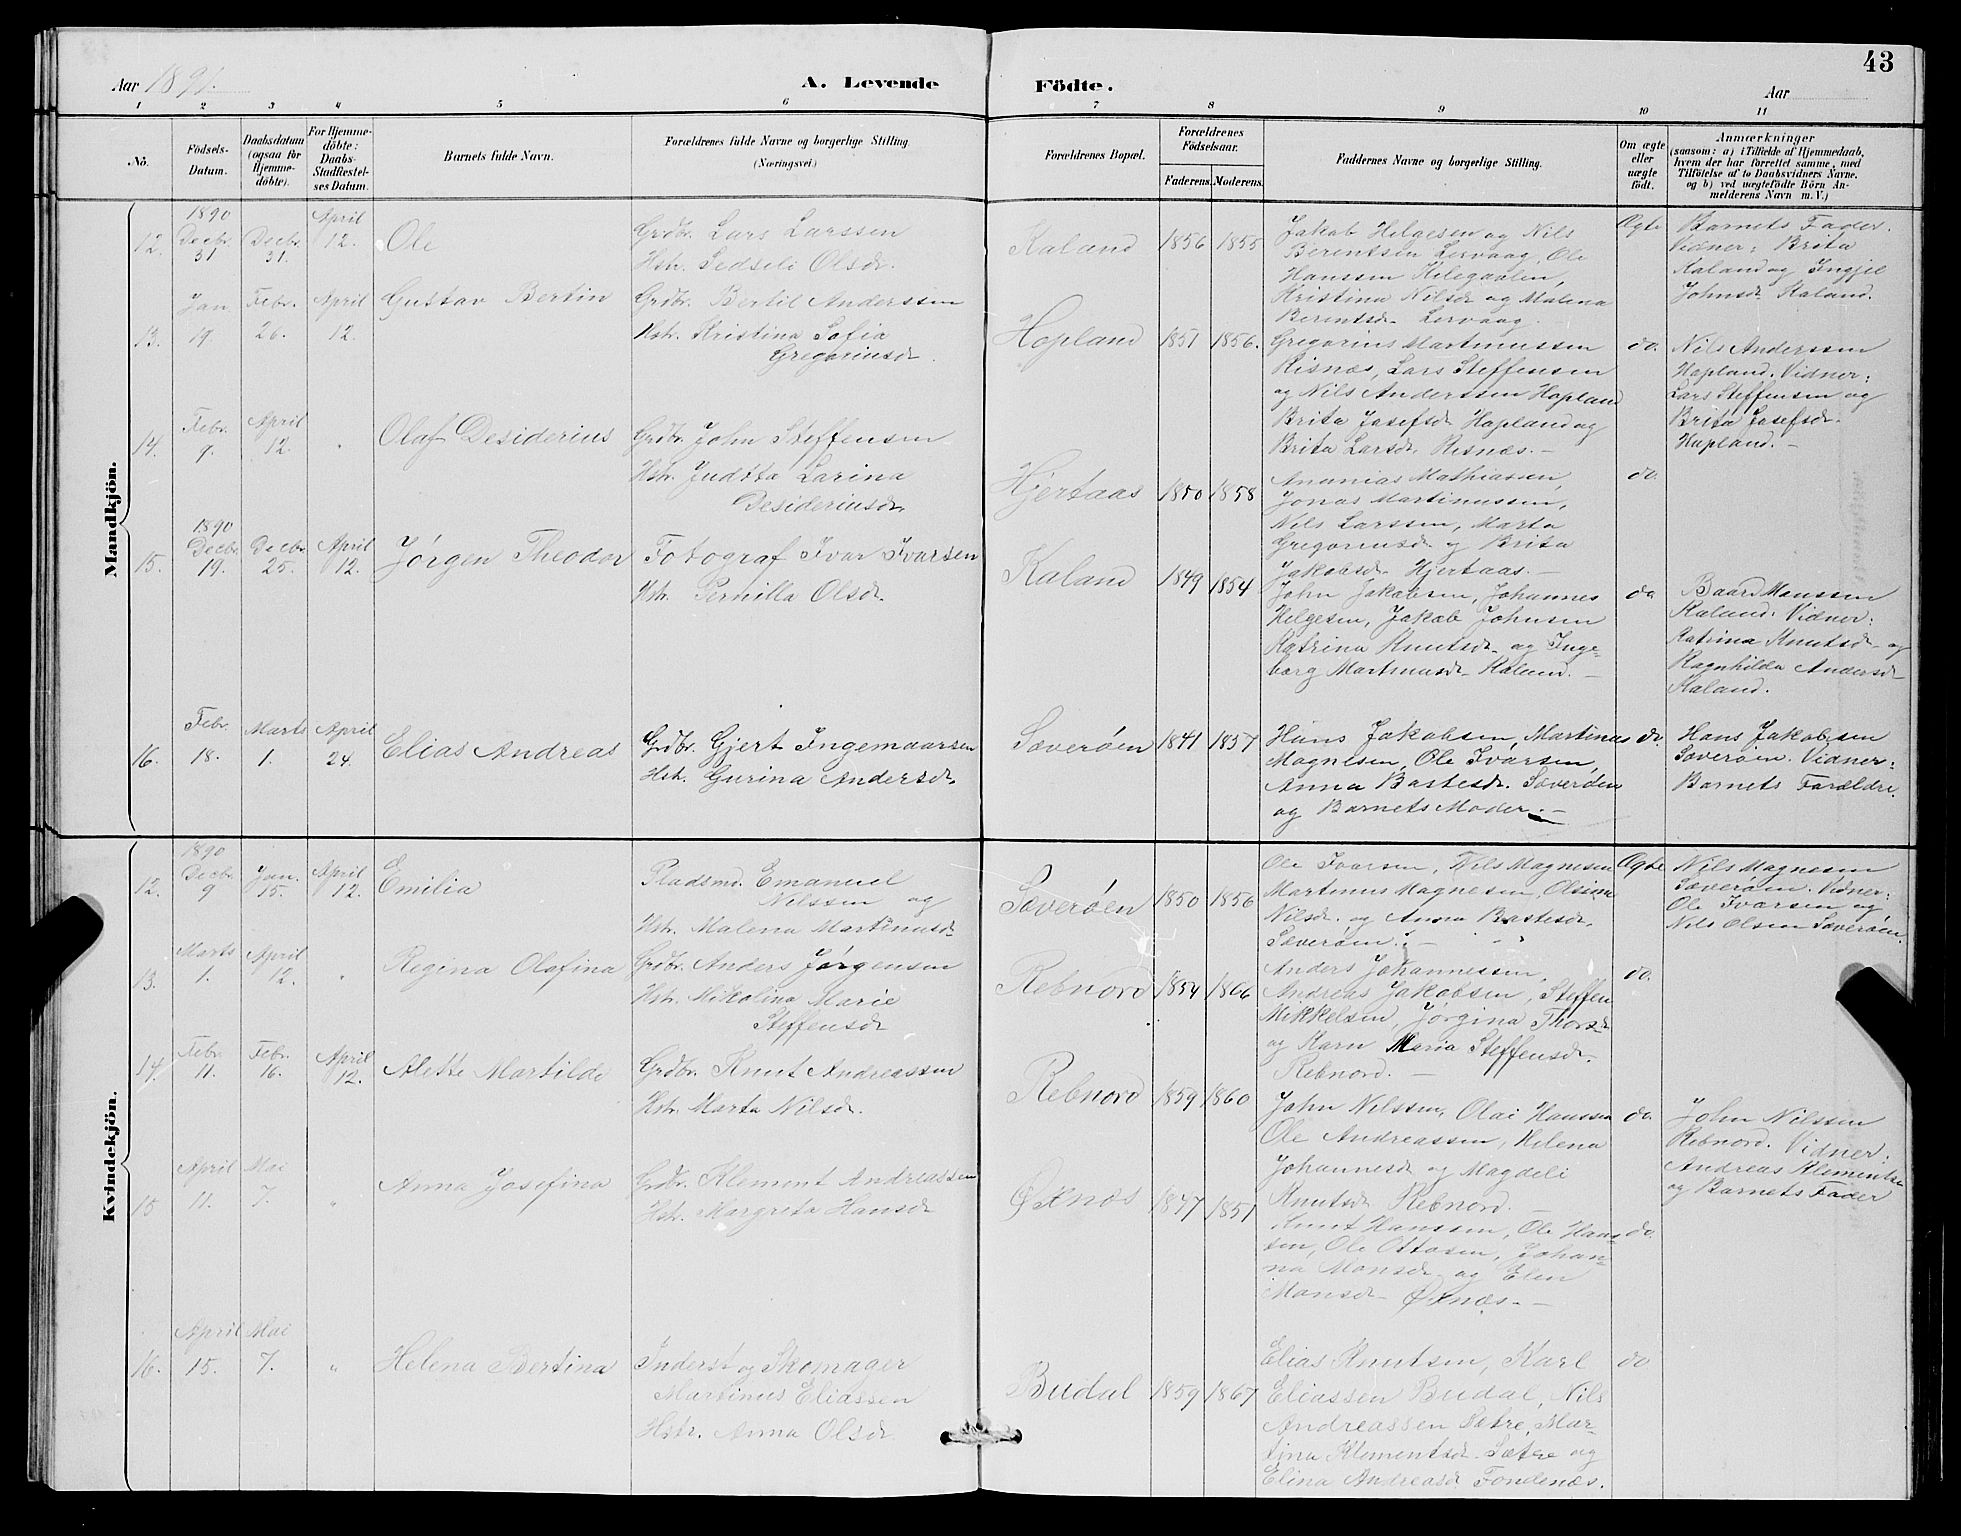 43
Aar 1891.
A. Levende Födte.
Aar
1 2 3 4 5 6 7 8 9 10 11
No.
Födsels-
Datum.
Daabsdatum
(ogsaa for
Hjemme-
döbte).
For Hjemme-
döbte:
Daabs-
Stadfæstel-
ses Datum.
Barnets fulde Navn.
Forældrenes fulde Navne og borgerlige Stilling.
(Næringsvei.)
Forældrenes Bopæl.
Forældrenes
Födselsaar.
Faderens. Moderens.
Faddernes Navne og borgerlige Stilling.
Om ægte
eller
uægte
födt.
Anmærkninger
(saasom: a) i Tilfælde af Hjemmedaab,
hvem der har forrettet samme, med
Tilföielse af to Daabsvidners Navne.
og b) ved uægtefödte Börn An-
melderens Navn m. V.)
Mandkjön.
12.
1890
Decbr.
31
Decbr.
31.
April
12.
Ole
Grdbr. Lars Larssen
Hstr. Sedseli Olsdr.
Kaland
1856 1855
Jakob Helgesen og Nils
Berentsen Lervaag, Ole
Hanssen
Kristina Nilsdr. og Malena
Berentsdr. Lervaag.
Ægte
Barnets Fader.
Vidner: Brita
Kaland og Ingjel
Johnsdr. Kaland.
13.
Jan
19.
Febr.
26.
April
12.
Gustav Bertin
Grdbr. Bertil Anderssen
Hstr. Kristina Sofia
Gregoriusdr.
Hopland
1851 1856.
Gregorius Martinussen
Risnæs, Lars Steffensen
og Nils Anderssen Hopland
Brita Josefsdr. Hopland og
Brita Larsdr. Risnæs. —
do.
Nils Anderssen
Hopland. Vidner:
Lars Steffensen og
Brita Josefsdr.
Hopland. —
14.
Febr.
9.
April
12.
"
Olaf Desiderius
Grdbr. John Steffensen
Hstr. Juditta Larina
Desideriusdr.
Hjertaas
1850 1858
Ananias Mathiassen,
Jonas Martinussen,
Nils Larssen, Marta
Gregoriusdr. og Brita
Jakobsdr. Hjertaas. —
do.
15.
1890
Decbr.
19.
Decbr.
25.
April
12.
Jørgen Theodor
Fotograf Ivar Ivarsen
Hstr. Pernilla Olsdr.
Kaland
1849 1854
John Jakobsen, Johannes
Helgesen, Jakob Johnsen
Katrina Knutsdr. og Inge-
borg Martinusdr. Kaland. —
do
Baard Monssen
Kaland. Vidner:
Katrina Knutsdr. og
Ragnhilda Andersdr
Kaland.
16.
Febr.
18.
Marts
1.
April
24.
Elias Andreas
Grdbr. Gjert Ingemaarsen
Hstr. Gurina Andersdr.
Sæverøen
1841 1857
Hans Jakobsen, Martinus
Magnesen, Ole Ivarsen,
Anna Bastesdr. Sæverøen
og Barnets Moder. —
do.
Hans Jakobsen
Sæverøen. Vidner:
Barnets Forældre.
Kvindekjön.
12.
1890
Decbr.
9
Jan.
15.
April
12.
Emilia
Pladsmd. Emanuel
Nilssen og
Hstr. Malena Martinusdr.
Sæverøen
1850 1856
Ole Ivarsen, Nils Magnesen
Martinus Magnesen, Olsina
Nilsdr. og Anna Bastesdr.
Sæverøen. —
Ægte
Nils Magnesen
Sæverøen. Vidner:
Ole Ivarsen og
Nils Olsen Sæverøen.
13.
Marts
1.
April
12.
"
Regina Olafina
Grdbr. Anders Jørgensen
Hstr. Nikolina Marie
Steffensdr
Rebnord
1854 1866
Anders Johannessen,
Andreas Jakobsen, Steffen
Mikkelsen, Jørgina Thorsdr
og Karn Maria Steffensdr.
Rebnord. —
do.
14.
Febr.
11.
Febr.
16.
April
12.
Alette Martilde
Grdbr. Knut Andreassen
Hstr. Marta Nilsdr.
Rebnord
1859 1860
John Nilssen, Olai Hanssen
Ole Andreassen, Helena
Johannesdr og Magdeli
Knutsdr. Rebnord. —
do.
John Nilssen
Rebnord. Vidner:
Andreas Klementsen
og Barnets Fader
15
April
11.
Mai
7.
"
Anna Josefina
Grdbr. Klement Andreassen
Hstr. Margreta Hansdr
Øxnæs
1847 1851
Knut Hanssen, Ole Hans-
sen, Ole Ottosen, Johan-
na Monsdr. og Elen
Monsdr. Øxnæs. —
do.
16.
April
15.
Mai
7.
"
Helena Bertina
Inderst og Skomager
Martinus Eliassen
Hstr. Anna Olsdr.
Budal
1859 1867
Elias Knutsen, Karl
Eliassen Budal, Nils
Andreassen Sætre, Mar-
tina Klementsdr. Sætre og
Elina Andreasdr Fondenæs.
do